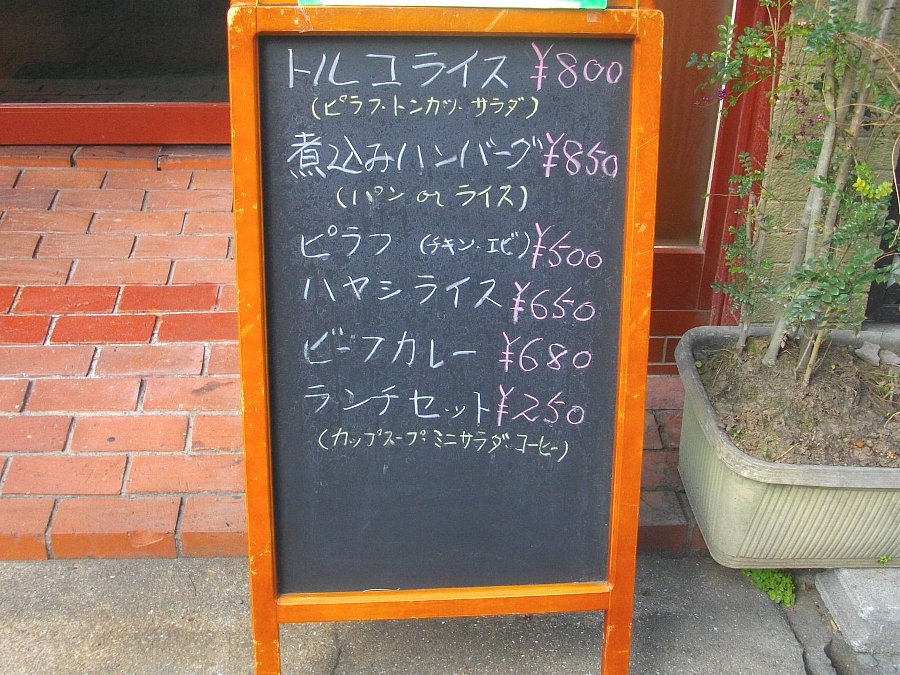 トルコライス ¥800
(ピラフ・トンカツ・サラダ)
煮込みハンバーグ ¥850
(パン or ライス)
ピラフ (チキン・エビ) ¥500
ハヤシライス ¥650
ビーフカレー ¥680
ランチセット ¥250
(カップスープ・ミニサラダ・コーヒー)